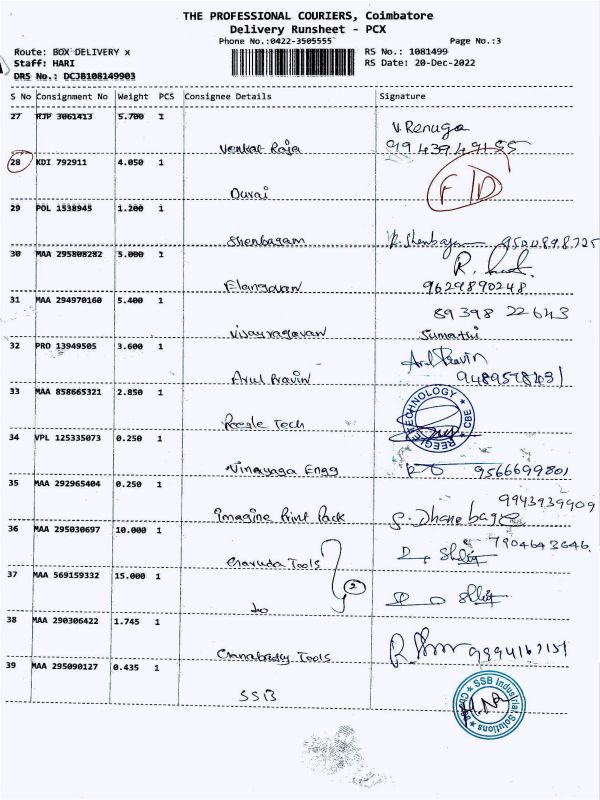 THE PROFESSIONAL COURIERS, Coimbatore
Delivery Runsheet - PCX
Phone No.:0422-3505555
Page No.:3
Route: BOX DELIVERY x
RS No.: 1081499
Staff: HARI
RS Date: 20-Dec-2022
DRS No.: DCJB108149903
S No Consignment No Weight PCS Consignee Details Signature
27 RJP 3061413 5.700 1
V. Renuga
Venkat Raja
28 KDI 792911 4.050 1
Durai
29 POL 1538945 1.200 1
Shenbagam
30 MAA 295808282 5.000 1
Elangovan 9629890248
31 MAA 294970160 5.400 1
89398 22643
Vijayragavan
32 PRO 13949505 3.600 1
Arul Pravin
33 MAA 858665321 2.850 1
Reegle Tech
REEGLE TECHNOLOGY ★ CBE ★
34 VPL 125335073 0.250 1
Vinayaga Engg 9566699801
35 MAA 292965404 0.250 1
9943939909
Imagine Print Pack
36 MAA 295030697 10.000 1
7904643646
Garuda Tools
37 MAA 569159332 15.000 1
2
do
38 MAA 290306422 1.745 1
Tools
39 MAA 295090127 0.435 1
SSB
SSB Industrial Solutions